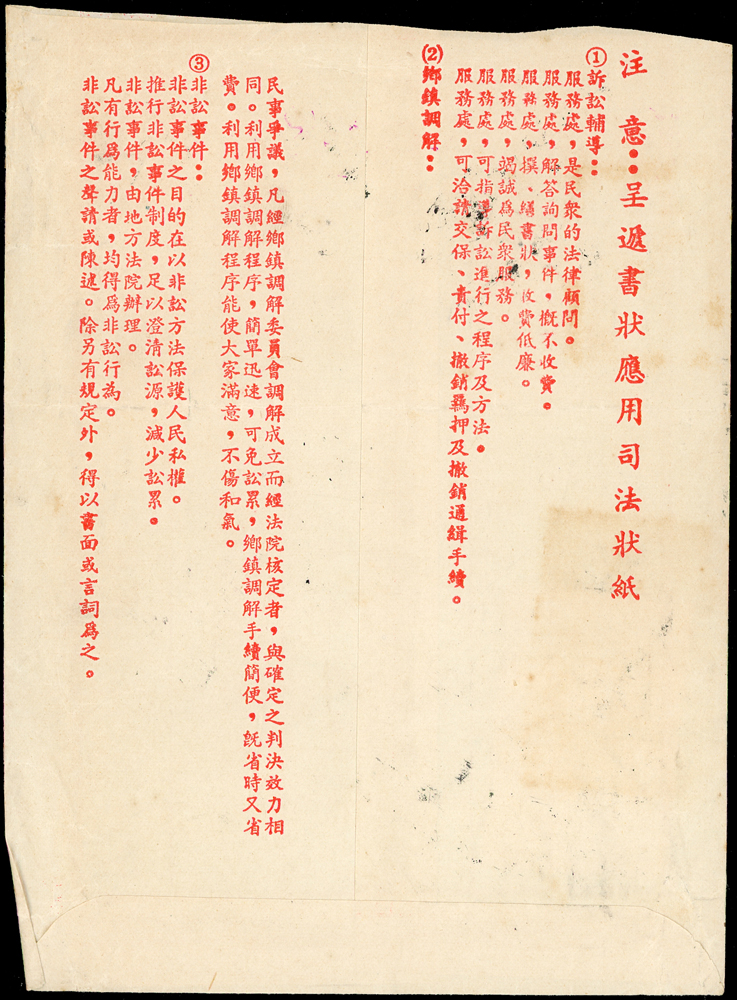 注意：呈遞書狀應用司法狀紙
①訴訟輔導：
服務處，是民衆的法律顧問。
服務處，解答詢問事件，概不收費。
服務處，撰、繕書狀，收費低廉。
服務處，竭誠爲民衆服務。
服務處，可指導訴訟進行之程序及方法。
服務處，可洽請交保、責付、撤銷羈押及撤銷通緝手續。
(2)鄉鎮調解：
民事爭議，凡經鄉鎮調解委員會調解成立而經法院核定者，與確定之判決效力相
同。利用鄉鎮調解程序，簡單迅速，可免訟累，鄉鎮調解手續簡便，旣省時又省
費。利用鄉鎮調解程序能使大家滿意，不傷和氣。
③非訟事件：
非訟事件之目的在以非訟方法保護人民私權。
推行非訟事件制度，足以澄清訟源，減少訟累。
非訟事件，由地方法院辦理。
凡有行爲能力者，均得爲非訟行為。
非訟事件之聲請或陳述。除另有規定外，得以書面或言詞爲之。